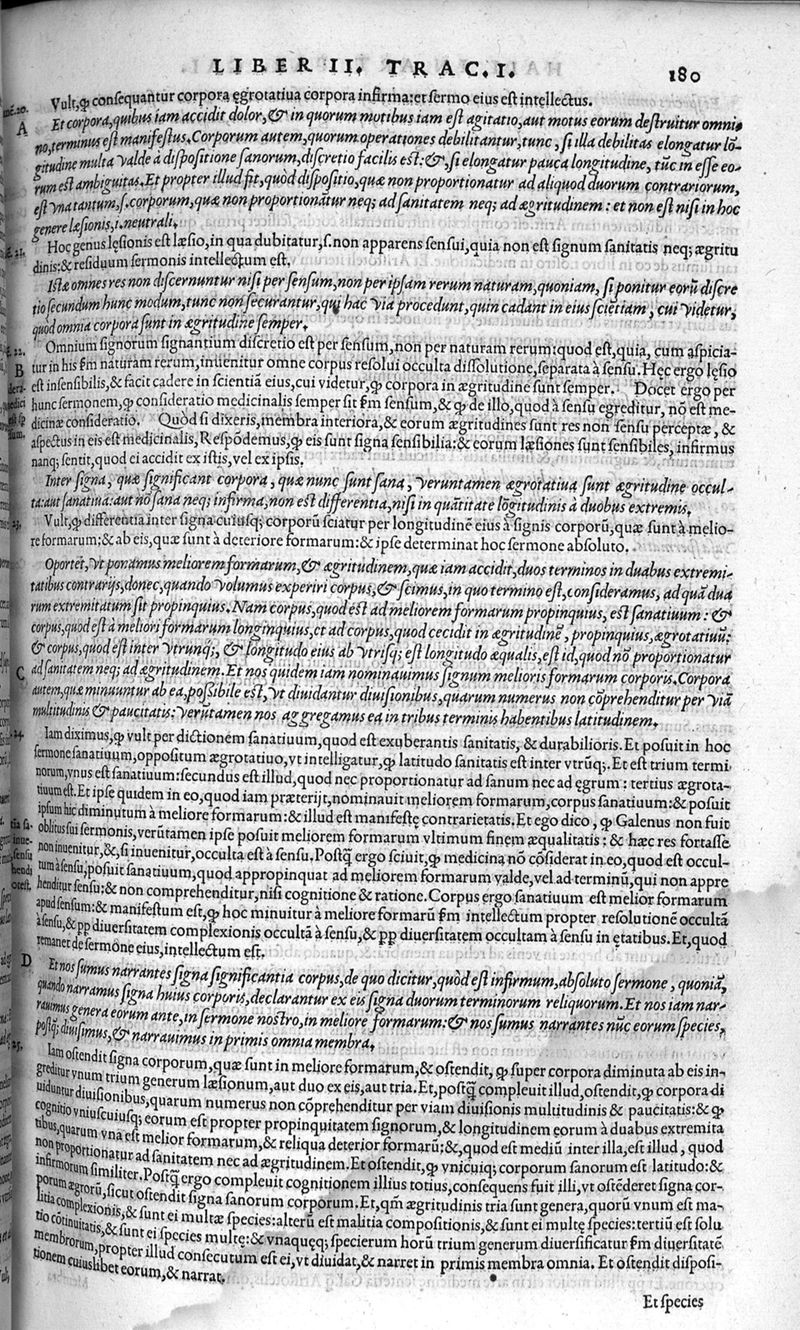 LIBER II. TRAC. I. 180
Vult, ꝙ consequantur corpora ęgrotatiua corpora infirma: et sermo eius est intellectus.
A
Et corpora, quibus iam accidit dolor, & in quorum motibus iam est agitatio, aut motus eorum destruitur omni-
no, terminus est manifestus. Corporum autem, quorum operationes debilitantur, tunc, si illa debilitas elongatur lō-
gitudine multa valde à dispositione sanorum, discretio facilis est: &, si elongatur pauca longitudine, tūc in esse eo-
rum est ambiguitas. Et propter illud fit, quòd dispositio, quæ non proportionatur ad aliquod duorum contrariorum,
est vna tantum, s. corporum, quæ non proportionātur neq; ad sanitatem neq; ad ægritudinem: et non est nisi in hoc
genere læsionis, i. neutrali.
Hoc genus lęsionis est læsio, in qua dubitatur, s. non apparens sensui, quia non est signum sanitatis neq; ægritu
dinis: & residuum sermonis intellectum est.
Istæ omnes res non discernuntur nisi per sensum, non per ipsam rerum naturam, quoniam, si ponitur eorū discre
tio secundum hunc modum, tunc non securantur, qui hac via procedunt, quin cadant in eius sciētiam, cui videtur,
quòd omnia corpora sunt in ægritudine semper.
Omnium signorum signantium discretio est per sensum, non per naturam rerum: quod est, quia, cum aspicia-
B
tur in his fm naturam rerum, inuenitur omne corpus resolui occulta dissolutione, separata à sensu. Hęc ergo lęsio
est insensibilis, & facit cadere in scientiā eius, cui videtur, ꝙ corpora in ægritudine sunt semper. Docet ergo per
hunc sermonem, ꝙ consideratio medicinalis semper sit fm sensum, & ꝙ de illo, quod à sensu egreditur, nō est me-
dicinæ consideratio. Quòd si dixeris, membra interiora, & eorum ægritudines sunt res non sensu perceptæ, &
aspectus in eis est medicinalis, Respōdemus, ꝙ eis sunt signa sensibilia: & eorum læsiones sunt sensibiles, infirmus
nanq; sentit, quod ei accidit ex istis, vel ex ipsis.
Inter signa, quæ significant corpora, quæ nunc sunt sana, veruntamen ægrotatiua sunt ægritudine occul-
ta: aut sanatiua: aut nō sana neq; infirma, non est differentia, nisi in quātitate lōgitudinis à duobus extremis.
Vult, ꝙ differentia inter signa cuiusq; corporū sciatur per longitudinē eius à signis corporū, quæ sunt à melio-
re formarum: & ab eis, quæ sunt à deteriore formarum: & ipse determinat hoc sermone absoluto.
Oportet, vt ponamus meliorem formarum, & ægritudinem, quæ iam accidit, duos terminos in duabus extremi-
tatibus contrarijs, donec, quando volumus experiri corpus, & scimus, in quo termino est, consideramus, ad quā dua
rum extremitatum sit propinquius. Nam corpus, quod est ad meliorem formarum propinquius, est sanatiuum: &
corpus, quod est à meliori formarum longinquius, et ad corpus, quod cecidit in ægritudinē, propinquius, ægrotatiuū:
& corpus, quod est inter vtrunq;, & longitudo eius ab vtrisq; est longitudo æqualis, est id, quod nō proportionatur
C
ad sanitatem neq; ad ægritudinem. Et nos quidem iam nominauimus signum melioris formarum corporis. Corpora
autem, quæ minuuntur ab ea, possibile est, vt diuidantur diuisionibus, quarum numerus non cōprehenditur per viā
multitudinis & paucitatis: verūtamen nos aggregamus ea in tribus terminis habentibus latitudinem.
Iam diximus, ꝙ vult per dictionem sanatiuum, quod est exuberantis sanitatis, & durabilioris. Et posuit in hoc
sermone sanatiuum, oppositum ægrotatiuo, vt intelligatur, ꝙ latitudo sanitatis est inter vtrūq;. Et est trium termi
norum, vnus est sanatiuum: secundus est illud, quod nec proportionatur ad sanum nec ad ęgrum: tertius ægrota-
tiuum est. Et ipse quidem in eo, quod iam præterijt, nominauit meliorem formarum, corpus sanatiuum: & posuit
ipsum hic diminutum à meliore formarum: & illud est manifestę contrarietatis. Et ego dico, ꝙ Galenus non fuit
oblitus sui sermonis, verūtamen ipse posuit meliorem formarum vltimum finem æqualitatis: & hæc res fortasse
non inuenitur, &, si inuenitur, occulta est à sensu. Postꝙ̄ ergo sciuit, ꝙ medicina nō cōsiderat in eo, quod est occul-
tum à sensu, posuit sanatiuum, quod appropinquat ad meliorem formarum valde, vel ad terminū, qui non appre
henditur sensu: & non comprehenditur, nisi cognitione & ratione. Corpus ergo sanatiuum est melior formarum
apud sensum: & manifestum est, ꝙ hoc minuitur à meliore formarū fm intellectum propter resolutionē occultā
à sensu, & pp diuersitatem complexionis occultā à sensu, & pp diuersitatem occultam à sensu in ętatibus. Et, quod
remanet de sermone eius, intellectum est.
D
Et nos sumus narrantes signa significantia corpus, de quo dicitur, quòd est infirmum, absoluto sermone, quoniā,
quando narramus signa huius corporis, declarantur ex eis signa duorum terminorum reliquorum. Et nos iam nar-
rauimus genera eorum ante, in sermone nostro, in meliore formarum: & nos sumus narrantes nūc eorum species,
postq; diuisimus, & narrauimus in primis omnia membra.
Iam ostendit signa corporum, quæ sunt in meliore formarum, & ostendit, ꝙ super corpora diminuta ab eis in-
greditur vnum trium generum læsionum, aut duo ex eis, aut tria. Et, postꝙ̄ compleuit illud, ostendit, ꝙ corpora di
uiduntur diuisionibus, quarum numerus non cōprehenditur per viam diuisionis multitudinis & paucitatis: & ꝙ
cognitio vniuscuiusq; eorum est propter propinquitatem signorum, & longitudinem eorum à duabus extremita
tibus, quarum vna est melior formarum, & reliqua deterior formarū: &, quod est mediū inter illa, est illud, quod
non proportionatur ad sanitatem nec ad ægritudinem. Et ostendit, ꝙ vnicuiq; corporum sanorum est latitudo: &
infirmorum similiter. Postꝙ̄ ergo compleuit cognitionem illius totius, consequens fuit illi, vt ostēderet signa cor-
porum ægrorū, sicut ostendit signa sanorum corporum. Et, qm̄ ægritudinis tria sunt genera, quorū vnum est ma-
litia complexionis, & sunt ei multæ species: alterū est malitia compositionis, & sunt ei multę species: tertiū est solu
tio cōtinuitatis, & sunt ei species multę: & vnaquęq; specierum horū trium generum diuersificatur fm diuersitatē
membrorum, propter illud consecutum est ei, vt diuidat, & narret in primis membra omnia. Et ostendit disposi-
tionem cuiuslibet eorum, & narrat.
Et species